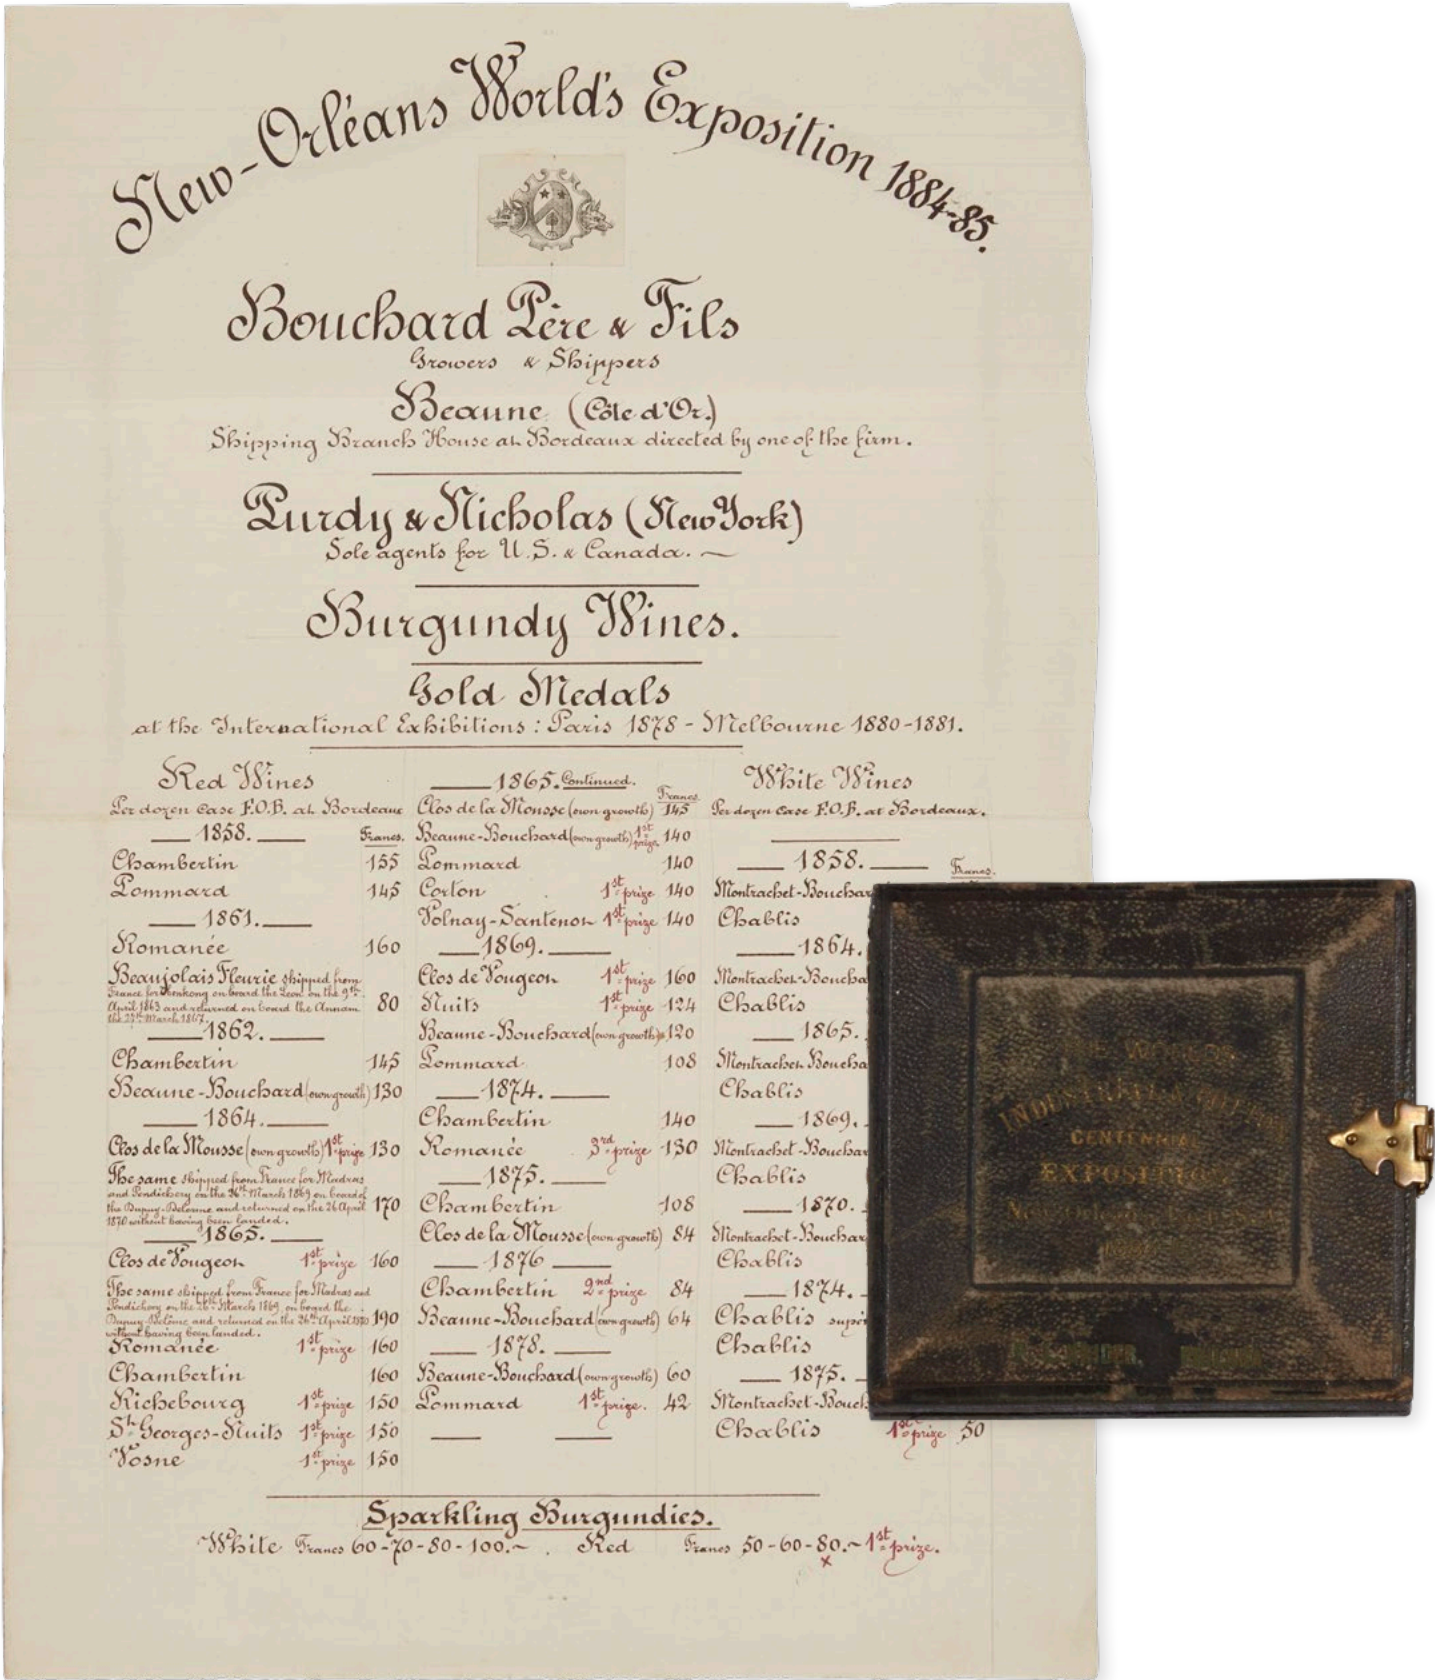 New-Orléans World's Exposition 1884-85.
Bouchard Père & Fils
Growers & Shippers
Beaune (Côte d'Or.)
Shipping Branch House at Bordeaux directed by one of the firm.
Purdy & Nicholas (New York)
Sole agents for U.S. & Canada.
Burgundy Wines.
Gold Medals
at the International Exhibitions: Paris 1878 - Melbourne 1880-1881.
Red Wines
Per dozen Case F.O.B. at Bordeaux
1858. Francs.
Chambertin 155
Pommard 145
1861.
Romanée 160
Beaujolais Fleurie shipped from
France for Honkong on board the Léon on the 9th
April 1863 and returned on board the Annam 80
the 25th March 1867.
1862.
Chambertin 145
Beaune-Bouchard (own growth) 130
1864.
Clos de la Mousse (own growth) 1st prize 130
The same shipped from France for Madras
and Pondichery on the 26th March 1869 on board of
the Dupuy-Delorme and returned on the 26 April 170
1870 without having been landed.
1865.
Clos de Vougeot 1st prize 160
The same shipped from France for Madras and
Pondichery on the 26th March 1869, on board the
Dupuy-Delôme and returned on the 26th April 1870 190
without having been landed.
Romanée 1st prize 160
Chambertin 160
Richebourg 1st prize 150
St Georges-Nuits 1st prize 150
Vosne 1st prize 150
1865. Continued.
Francs.
Clos de la Mousse (own growth) 145
Beaune-Bouchard (own growth) 1st prize 140
Pommard 140
Corton 1st prize 140
Volnay-Santenot 1st prize 140
1869.
Clos de Vougeot 1st prize 160
Nuits 1st prize 124
Beaune-Bouchard (own growth) 120
Pommard 108
1874.
Chambertin 140
Romanée 3rd prize 130
1875.
Chambertin 108
Clos de la Mousse (own growth) 84
1876
Chambertin 2nd prize 84
Beaune-Bouchard (own growth) 64
1878.
Beaune-Bouchard (own growth) 60
Pommard 1st prize. 42
White Wines
Per dozen Case F.O.B. at Bordeaux.
1858. Francs.
Montrachet-Bouchar
Chablis
1864.
Montrachet-Boucha
Chablis
1865.
Montrachet Boucha
Chablis
1869.
Montrachet-Bouchar
Chablis
1870.
Montrachet-Bouchar
Chablis
1874.
Chablis supér
Chablis
1875.
Montrachet-Bouch
Chablis 1st prize 50
Sparkling Burgundies.
White Francs 60-70-80-100.~. Red Francs 50-60-80.~1st prize.
x
WORLD'S
INDUSTRIAL & COTTON
CENTENNIAL
EXPOSITION
New Orleans